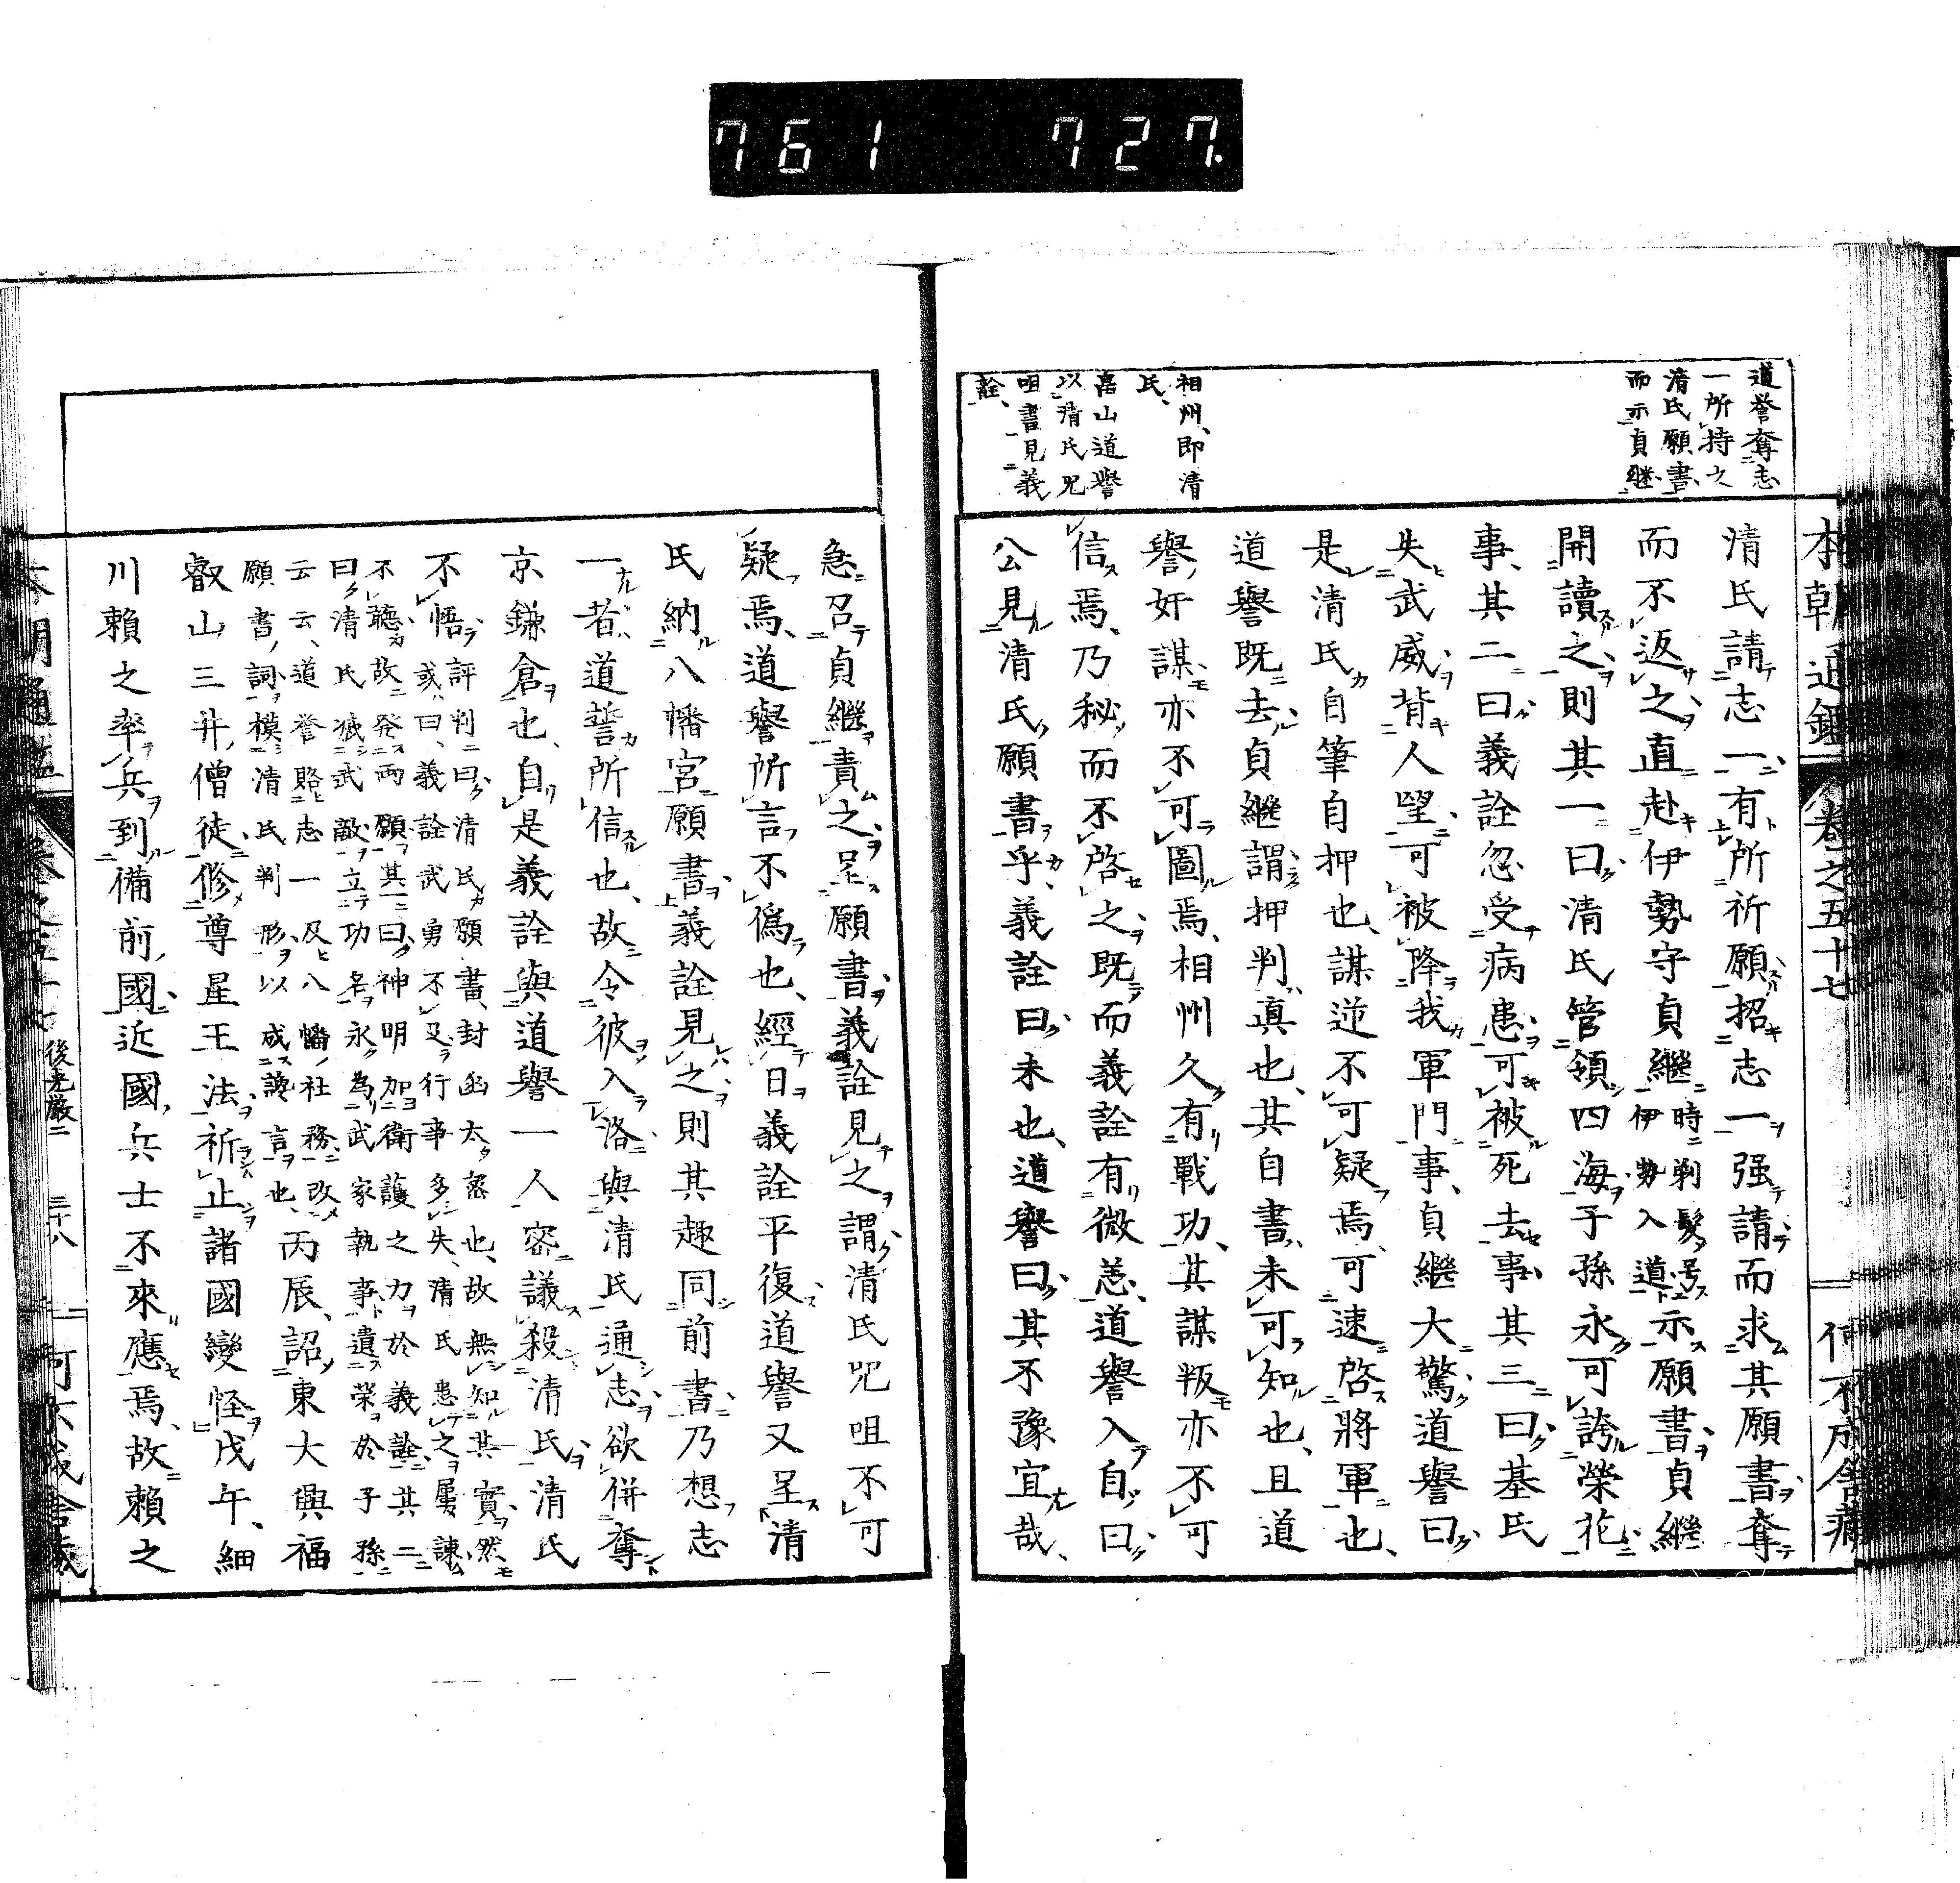 761 727.
本朝通鑑 卷之五十七
道誉奪志
一所持之
清氏願書、
而示貞継
相州、即清
氏、
畠山道譽
以清氏咒
咀書見義
詮、
清氏請志一有所祈願招志一强請而求其願書奪
而不返之直赴伊勢守貞繼時剃髮号伊勢入道示願書貞繼
開讀之則其一曰清氏管領四海子孫永可誇榮花
事、其二曰義詮忽受病患可被死去事其三曰基氏
失武威背人望可被降我軍門事、貞繼大驚道譽曰
是清氏自筆自押也、謀逆不可疑焉、可速啓將軍也、
道譽既去貞繼謂押判真也、其自書未可知也、且道
譽奸謀亦不可圖焉、相州久有戰功、其謀叛亦不可
信焉、乃秘而不啓之既而義詮有微恙、道譽入自曰
公見清氏願書乎、義詮曰未也、道譽曰其不豫宜哉、
急召貞繼責之呈願書義詮見之謂清氏咒咀不可
疑焉、道譽所言不偽也、經日義詮平復道譽又呈清
氏納八幡宮願書義詮見之則其趣同前書乃想志
一者道誓所信也、故令彼入洛與清氏通志欲併奪
京鎌倉也、自是義詮與道譽一人密議殺清氏清氏
不悟評判曰清氏願書、封函太密也、故無知其實然
或曰、義詮武勇不足行事多失、清氏患之屢諫
不聽故発両願其一曰神明加衛護之力於義詮其二
曰清氏滅武敵立功名永為武家執事遺榮於子孫
云云、道誉賂志一及八幡社務、改
願書詞模清氏判形以成讒言也、丙辰、詔東大興福
叡山三井僧徒、修尊星王法祈止諸國變怪戊午、細
川賴之率兵到備前國近國兵士不來應焉、故賴之
後光嚴二 三十八